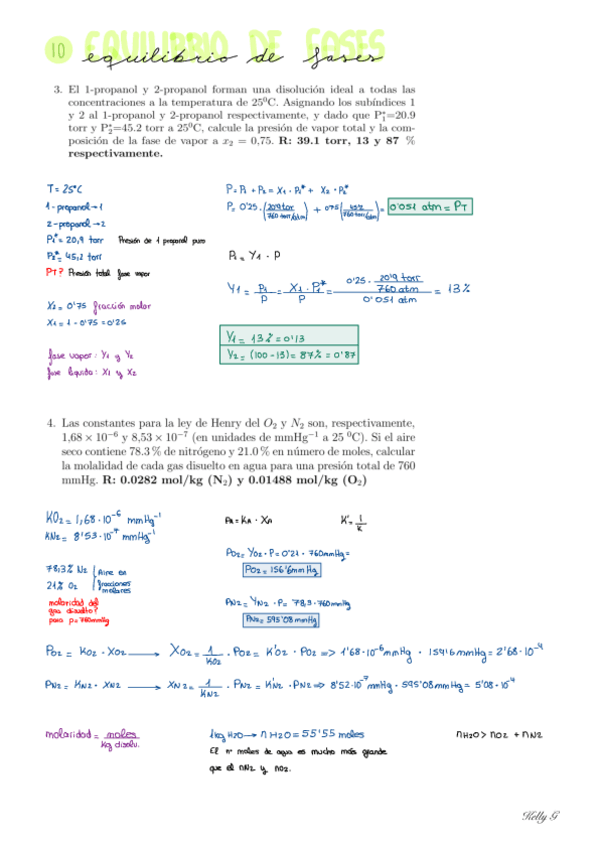 10 EQUILIBRIO DE FASES
equilibrio de fases
3. El 1-propanol y 2-propanol forman una disolución ideal a todas las
concentraciones a la temperatura de 25⁰C. Asignando los subíndices 1
y 2 al 1-propanol y 2-propanol respectivamente, y dado que P₁*=20.9
torr y P₂*=45.2 torr a 25⁰C, calcule la presión de vapor total y la com-
posición de la fase de vapor a x₂ = 0,75. R: 39.1 torr, 13 y 87 %
respectivamente.
T = 25°C
1-propanol → 1
2-propanol → 2
P₁* = 20,9 torr Presión de 1 propanol puro
P₂* = 45,2 torr
PT? Presión total fase vapor
X₂ = 0'75 fracción molar
X₁ = 1 - 0'75 = 0'25
fase vapor: Y₁ y Y₂
fase líquida: X₁ y X₂
P = P₁ + P₂ = X₁ · P₁* + X₂ · P₂*
P = 0'25 · (20'9 torr / 760 torr/atm) + 0'75 (45'2 / 760 torr/atm) = 0'051 atm = PT
P₁ = Y₁ · P
Y₁ = P₁ / P = X₁ · P₁* / P = 0'25 · 20'9 torr / 760 atm / 0'051 atm = 13%
Y₁ = 13% = 0'13
Y₂ = (100 - 13) = 87% = 0'87
4. Las constantes para la ley de Henry del O₂ y N₂ son, respectivamente,
1,68 × 10⁻⁶ y 8,53 × 10⁻⁷ (en unidades de mmHg⁻¹ a 25 ⁰C). Si el aire
seco contiene 78.3 % de nitrógeno y 21.0 % en número de moles, calcular
la molalidad de cada gas disuelto en agua para una presión total de 760
mmHg. R: 0.0282 mol/kg (N₂) y 0.01488 mol/kg (O₂)
KO₂ = 1,68·10⁻⁶ mmHg⁻¹
KN₂ = 8'53·10⁻⁷ mmHg⁻¹
PA = KA · XA
K' = 1/K
78,3% N₂
21% O₂
Aire en
fracciones
molares
molaridad del
gas disuelto?
para p = 760mmHg
PO₂ = YO₂ · P = 0'21 · 760mmHg =
PO₂ = 156'6mmHg
PN₂ = YN₂ · P = 78,3 · 760mmHg
PN₂ = 595'08 mmHg
PO₂ = KO₂ · XO₂ → XO₂ = 1/KO₂ · PO₂ = K'O₂ · PO₂ => 1'68·10⁻⁶ mmHg · 159'6mmHg = 2'68·10⁻⁴
PN₂ = KN₂ · XN₂ → XN₂ = 1/KN₂ · PN₂ = K'N₂ · PN₂ => 8'52·10⁻⁷ mmHg · 595'08mmHg = 5'08·10⁻⁴
molaridad = moles / Kg disolv.
1kg H₂O → nH₂O = 55'55 moles
El nº moles de agua es mucho más grande
que el nN₂ y nO₂.
nH₂O > nO₂ + nN₂
Kelly G